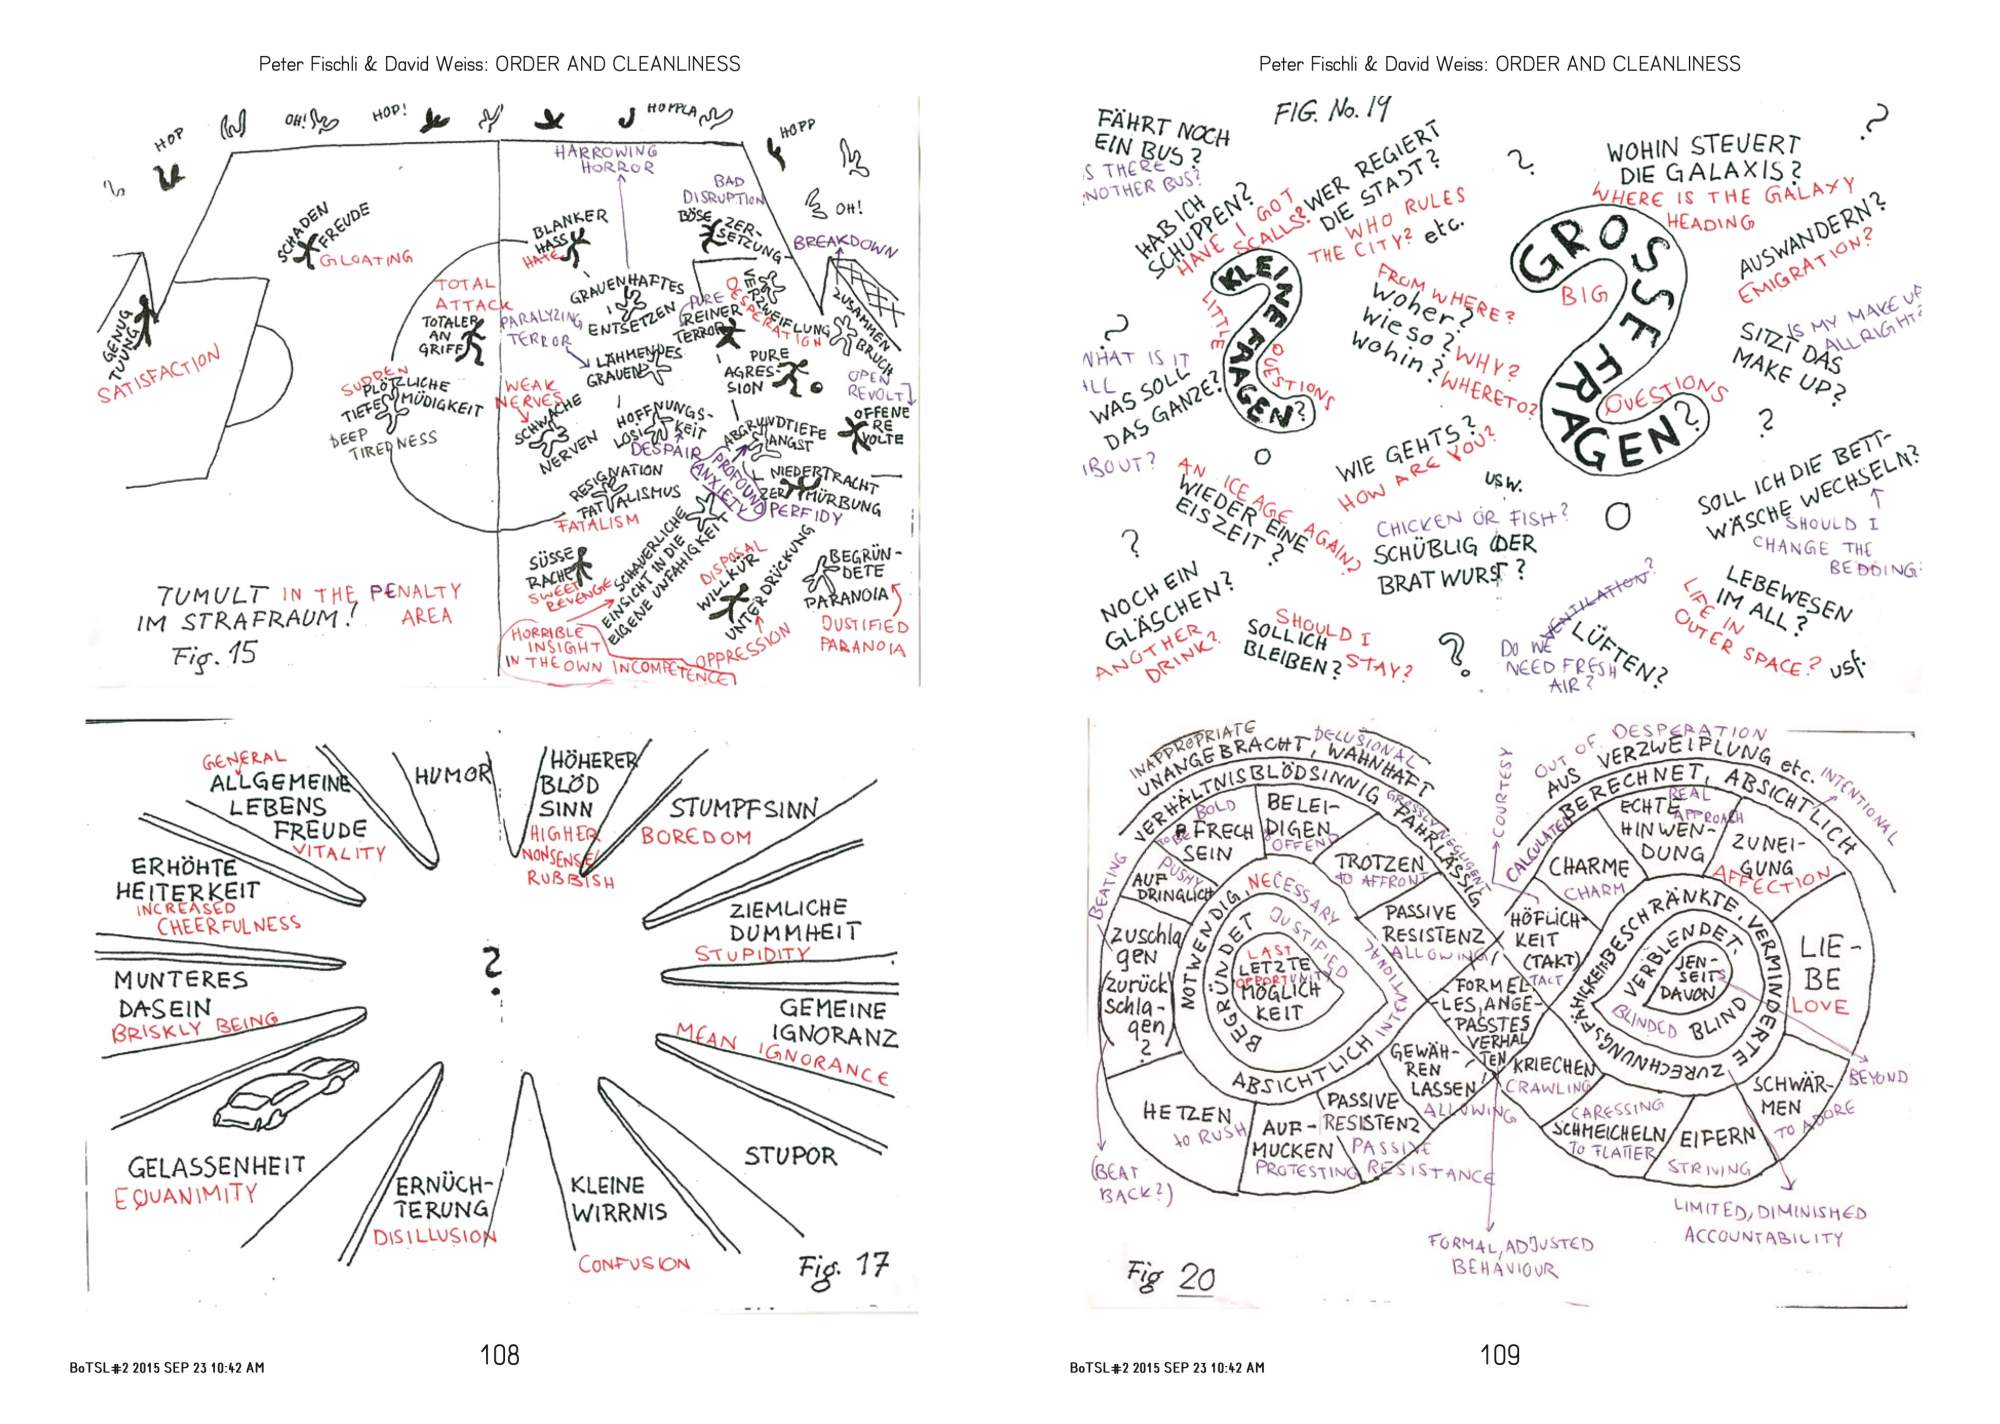 Peter Fischli & David Weiss: ORDER AND CLEANLINESS
HOP
OH!
HOP!
HOPPLA
HOPP
OH!
HARROWING
HORROR
BAD
DISRUPTION
BÖSE ZER-
SETZUNG
BREAKDOWN
SCHADEN
FREUDE
GLOATING
BLANKER
HASS
HATE
TOTAL
ATTACK
TOTALER
AN
GRIFF
PARALYZING
TERROR
GRAUENHAFTES
ENTSETZEN
PURE
REINER
TERROR
DESPERATION
VERZWEIFLUNG
ZUSAMMEN
BRUCH
GENUG
TUUNG
SATISFACTION
LÄHMENDES
GRAUEN
PURE
AGRES-
SION
OPEN
REVOLT
OFFENE
RE
VOLTE
SUDDEN
PLÖTZLICHE
TIEFE MÜDIGKEIT
DEEP
TIREDNESS
WEAK
NERVES
SCHWACHE
NERVEN
HOFFNUNGS-
LOSIGKEIT
DESPAIR
ABGRUNDTIEFE
ANGST
PROFOUND
ANXIETY
NIEDERTRACHT
ZERMÜRBUNG
PERFIDY
RESIGNATION
FATTALISMUS
FATALISM
SÜSSE
RACHE
SWEET
REVENGE
SCHAUERLICHE
EINSICHT IN DIE
EIGENE UNFÄHIGKEIT
DISPOSAL
WILLKÜR
UNTERDRÜCKUNG
OPPRESSION
BEGRÜN-
DETE
PARANOIA
JUSTIFIED
PARANOIA
HORRIBLE
INSIGHT
IN THE OWN INCOMPETENCE
TUMULT IN THE PENALTY
IM STRAFRAUM! AREA
Fig. 15
GENERAL
ALLGEMEINE
LEBENS
FREUDE
VITALITY
HUMOR
HÖHERER
BLÖD
SINN
HIGHER
NONSENSE/
RUBBISH
STUMPFSINN
BOREDOM
ERHÖHTE
HEITERKEIT
INCREASED
CHEERFULNESS
ZIEMLICHE
DUMMHEIT
STUPIDITY
?
MUNTERES
DASEIN
BRISKLY BEING
GEMEINE
IGNORANZ
MEAN IGNORANCE
GELASSENHEIT
EQUANIMITY
ERNÜCH-
TERUNG
DISILLUSION
KLEINE
WIRRNIS
CONFUSION
STUPOR
Fig. 17
108
BoTSL#2 2015 SEP 23 10:42 AM
Peter Fischli & David Weiss: ORDER AND CLEANLINESS
FIG. No. 19
FÄHRT NOCH
EIN BUS?
S THERE
NOTHER BUS?
HAB ICH
SCHUPPEN?
HAVE I GOT
SCALLS?
WER REGIERT
DIE STADT?
WHO RULES
THE CITY? etc.
?
WOHIN STEUERT
DIE GALAXIS?
WHERE IS THE GALAXY
HEADING
?
AUSWANDERN?
EMIGRATION?
KLEINE FRAGEN?
LITTLE
QUESTIONS
GROSSE FRAGEN?
BIG
QUESTIONS
FROM WHERE?
woher?
wieso? WHY?
wohin? WHERETO?
IS MY MAKE UP
ALL RIGHT?
SITZT DAS
MAKE UP?
?
WHAT IS IT
ALL
WAS SOLL
DAS GANZE?
ABOUT?
WIE GEHTS?
HOW ARE YOU?
usw.
?
SOLL ICH DIE BETT-
WÄSCHE WECHSELN?
SHOULD I
CHANGE THE
BEDDING
AN ICE AGE AGAIN?
WIEDER EINE
EISZEIT?
CHICKEN OR FISH?
SCHÜBLIG ODER
BRATWURST?
?
NOCH EIN
GLÄSCHEN?
ANOTHER
DRINK?
SHOULD I
SOLL ICH
BLEIBEN? STAY?
?
DO WE VENTILATION?
NEED FRESH
AIR?
LÜFTEN?
LEBEWESEN
IM ALL?
LIFE IN
OUTER SPACE?
usf.
INAPPROPRIATE DELUSIONAL
UNANGEBRACHT, WAHNHAFT
VERHÄLTNISBLÖDSINNIG FAHRLÄSSIG
GROSSLY NEGLIGENT
BOLD
FRECH
SEIN
BELEI-
DIGEN
OFFEND
TROTZEN
to AFFRONT
PUSHY
AUF
DRINGLICH
BEATING
ZUSCHLA
gen
(zurück
schla-
gen
?
(BEAT
BACK?)
PASSIVE
RESISTENZ
ALLOWING
NOTWENDIG, NECESSARY
ABSICHTLICH INTENTIONAL
BEGRÜNDET JUSTIFIED
LAST
LETZTE
OPPORTUNITY
MÖGLICH
KEIT
HETZEN
to RUSH
AUF-
MUCKEN
PROTESTING
PASSIVE
RESISTENZ
PASSIVE
RESISTANCE
GEWÄH-
REN
LASSEN
ALLOWING
COURTESY
OUT OF DESPERATION
AUS VERZWEIFLUNG etc.
INTENTIONAL
BERECHNET, ABSICHTLICH
CALCULATED
CHARME
CHARM
ECHTE
REAL
HINWEN-
APPROACH
DUNG
ZUNEI-
GUNG
AFFECTION
HÖFLICH-
KEIT
(TAKT)
TACT
FORMEL
LES, ANGE-
PASSTES
VERHAL
TEN
LIE-
BE
LOVE
BESCHRÄNKTE, VERMINDERTE
ZURECHNUNGSFÄHIGKEIT
VERBLENDET
BLIND
BLINDED
JEN-
SEITS
DAVON
BEYOND
KRIECHEN
CRAWLING
CARESSING
SCHMEICHELN
To FLATTER
EIFERN
STRIVING
SCHWÄR-
MEN
TO ADORE
LIMITED, DIMINISHED
ACCOUNTABILITY
FORMAL, ADJUSTED
BEHAVIOUR
Fig 20
109
BoTSL#2 2015 SEP 23 10:42 AM